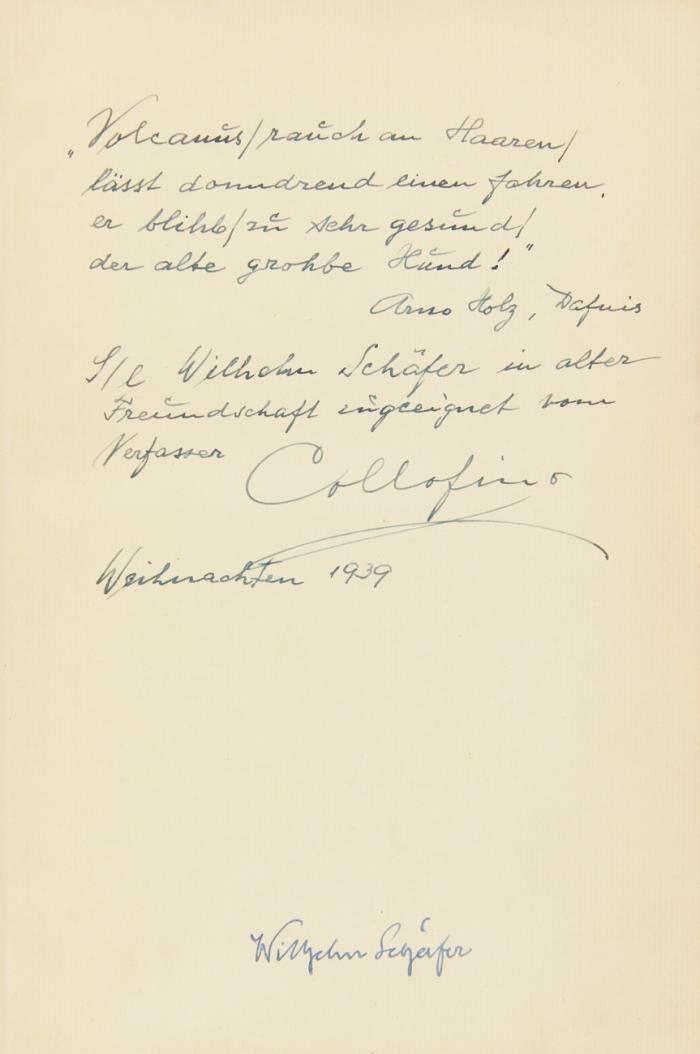 „Volcanus/rauch an Haaren/
lässt donndrend einen fahren,
er blihb/zu sehr gesund/
der alte grohbe Hund!"
Arno Holz, Dafnis
S/l Wilhelm Schäfer in alter
Freundschaft zugeeignet vom
Verfasser
Collofino
Weihnachten 1939
Wilhelm Schäfer